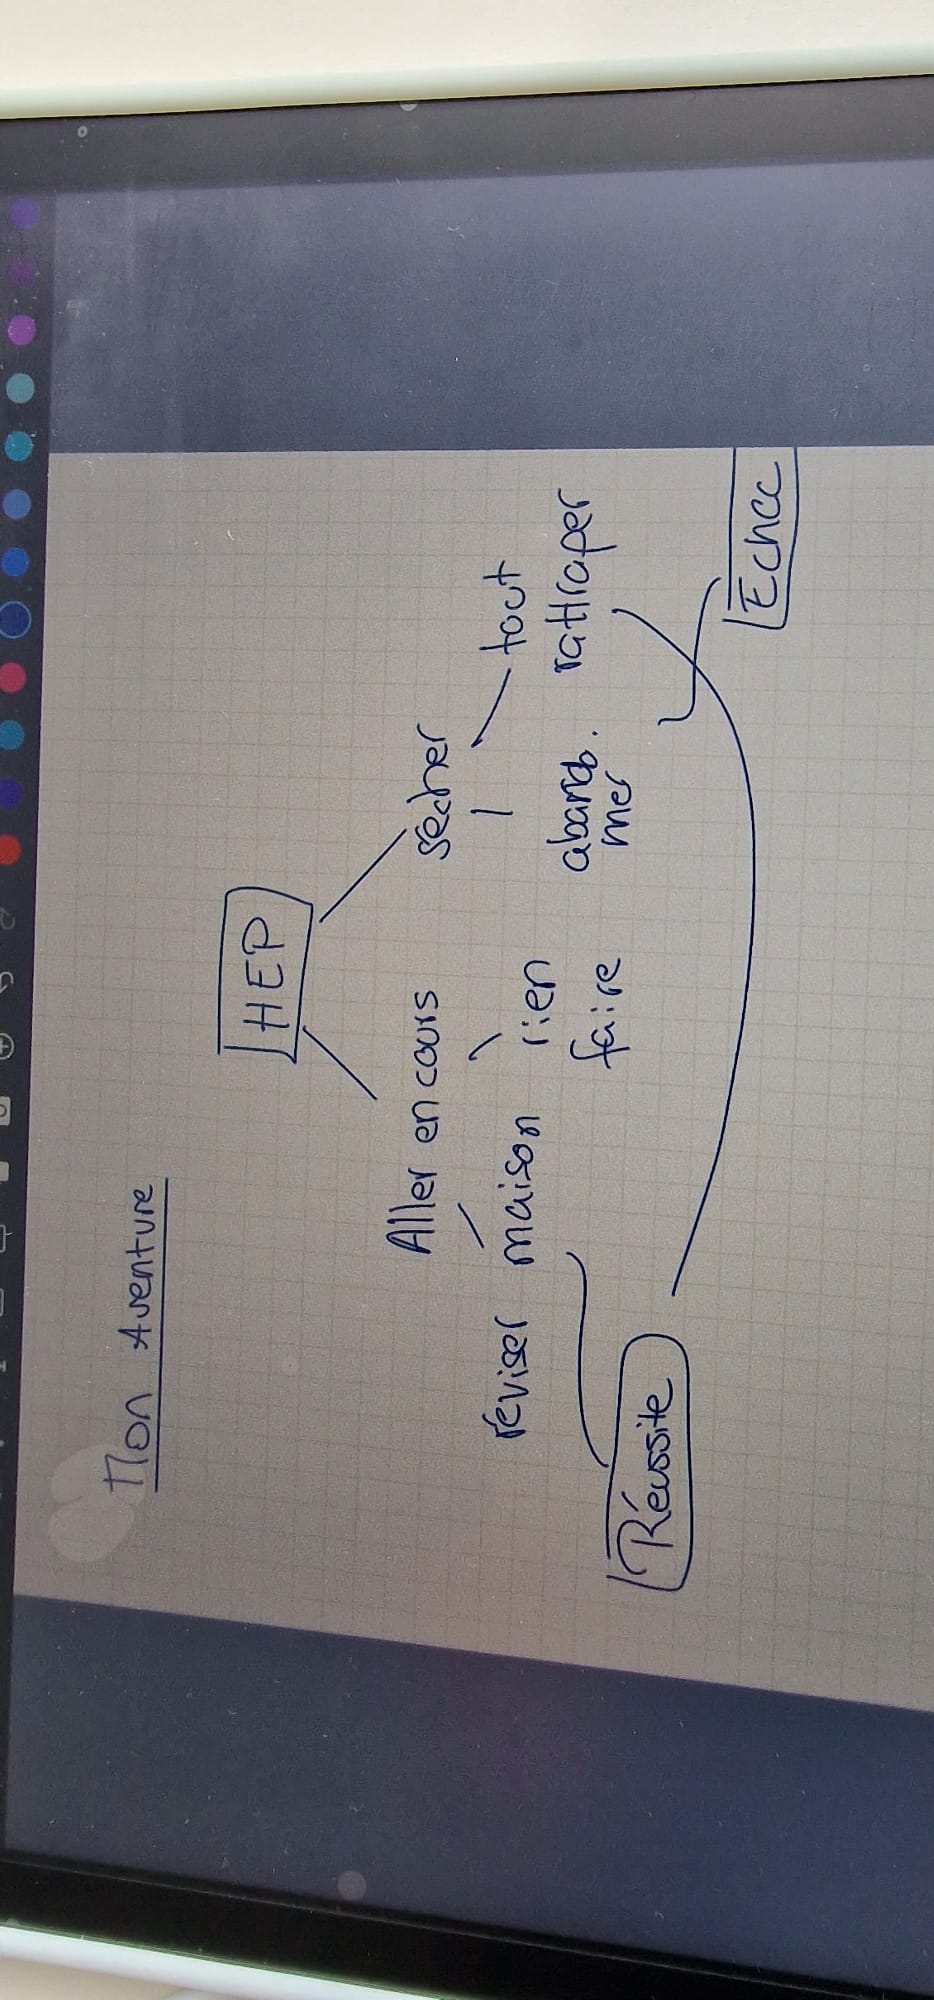 Mon Aventure
HEP
Aller en cours
sécher
réviser maison
rien
faire
abando.
nner
tout
rattraper
Réussite
Echec